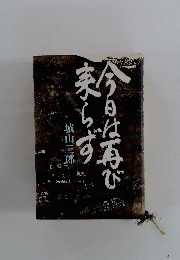 今日は再び
来らず
城山三郎